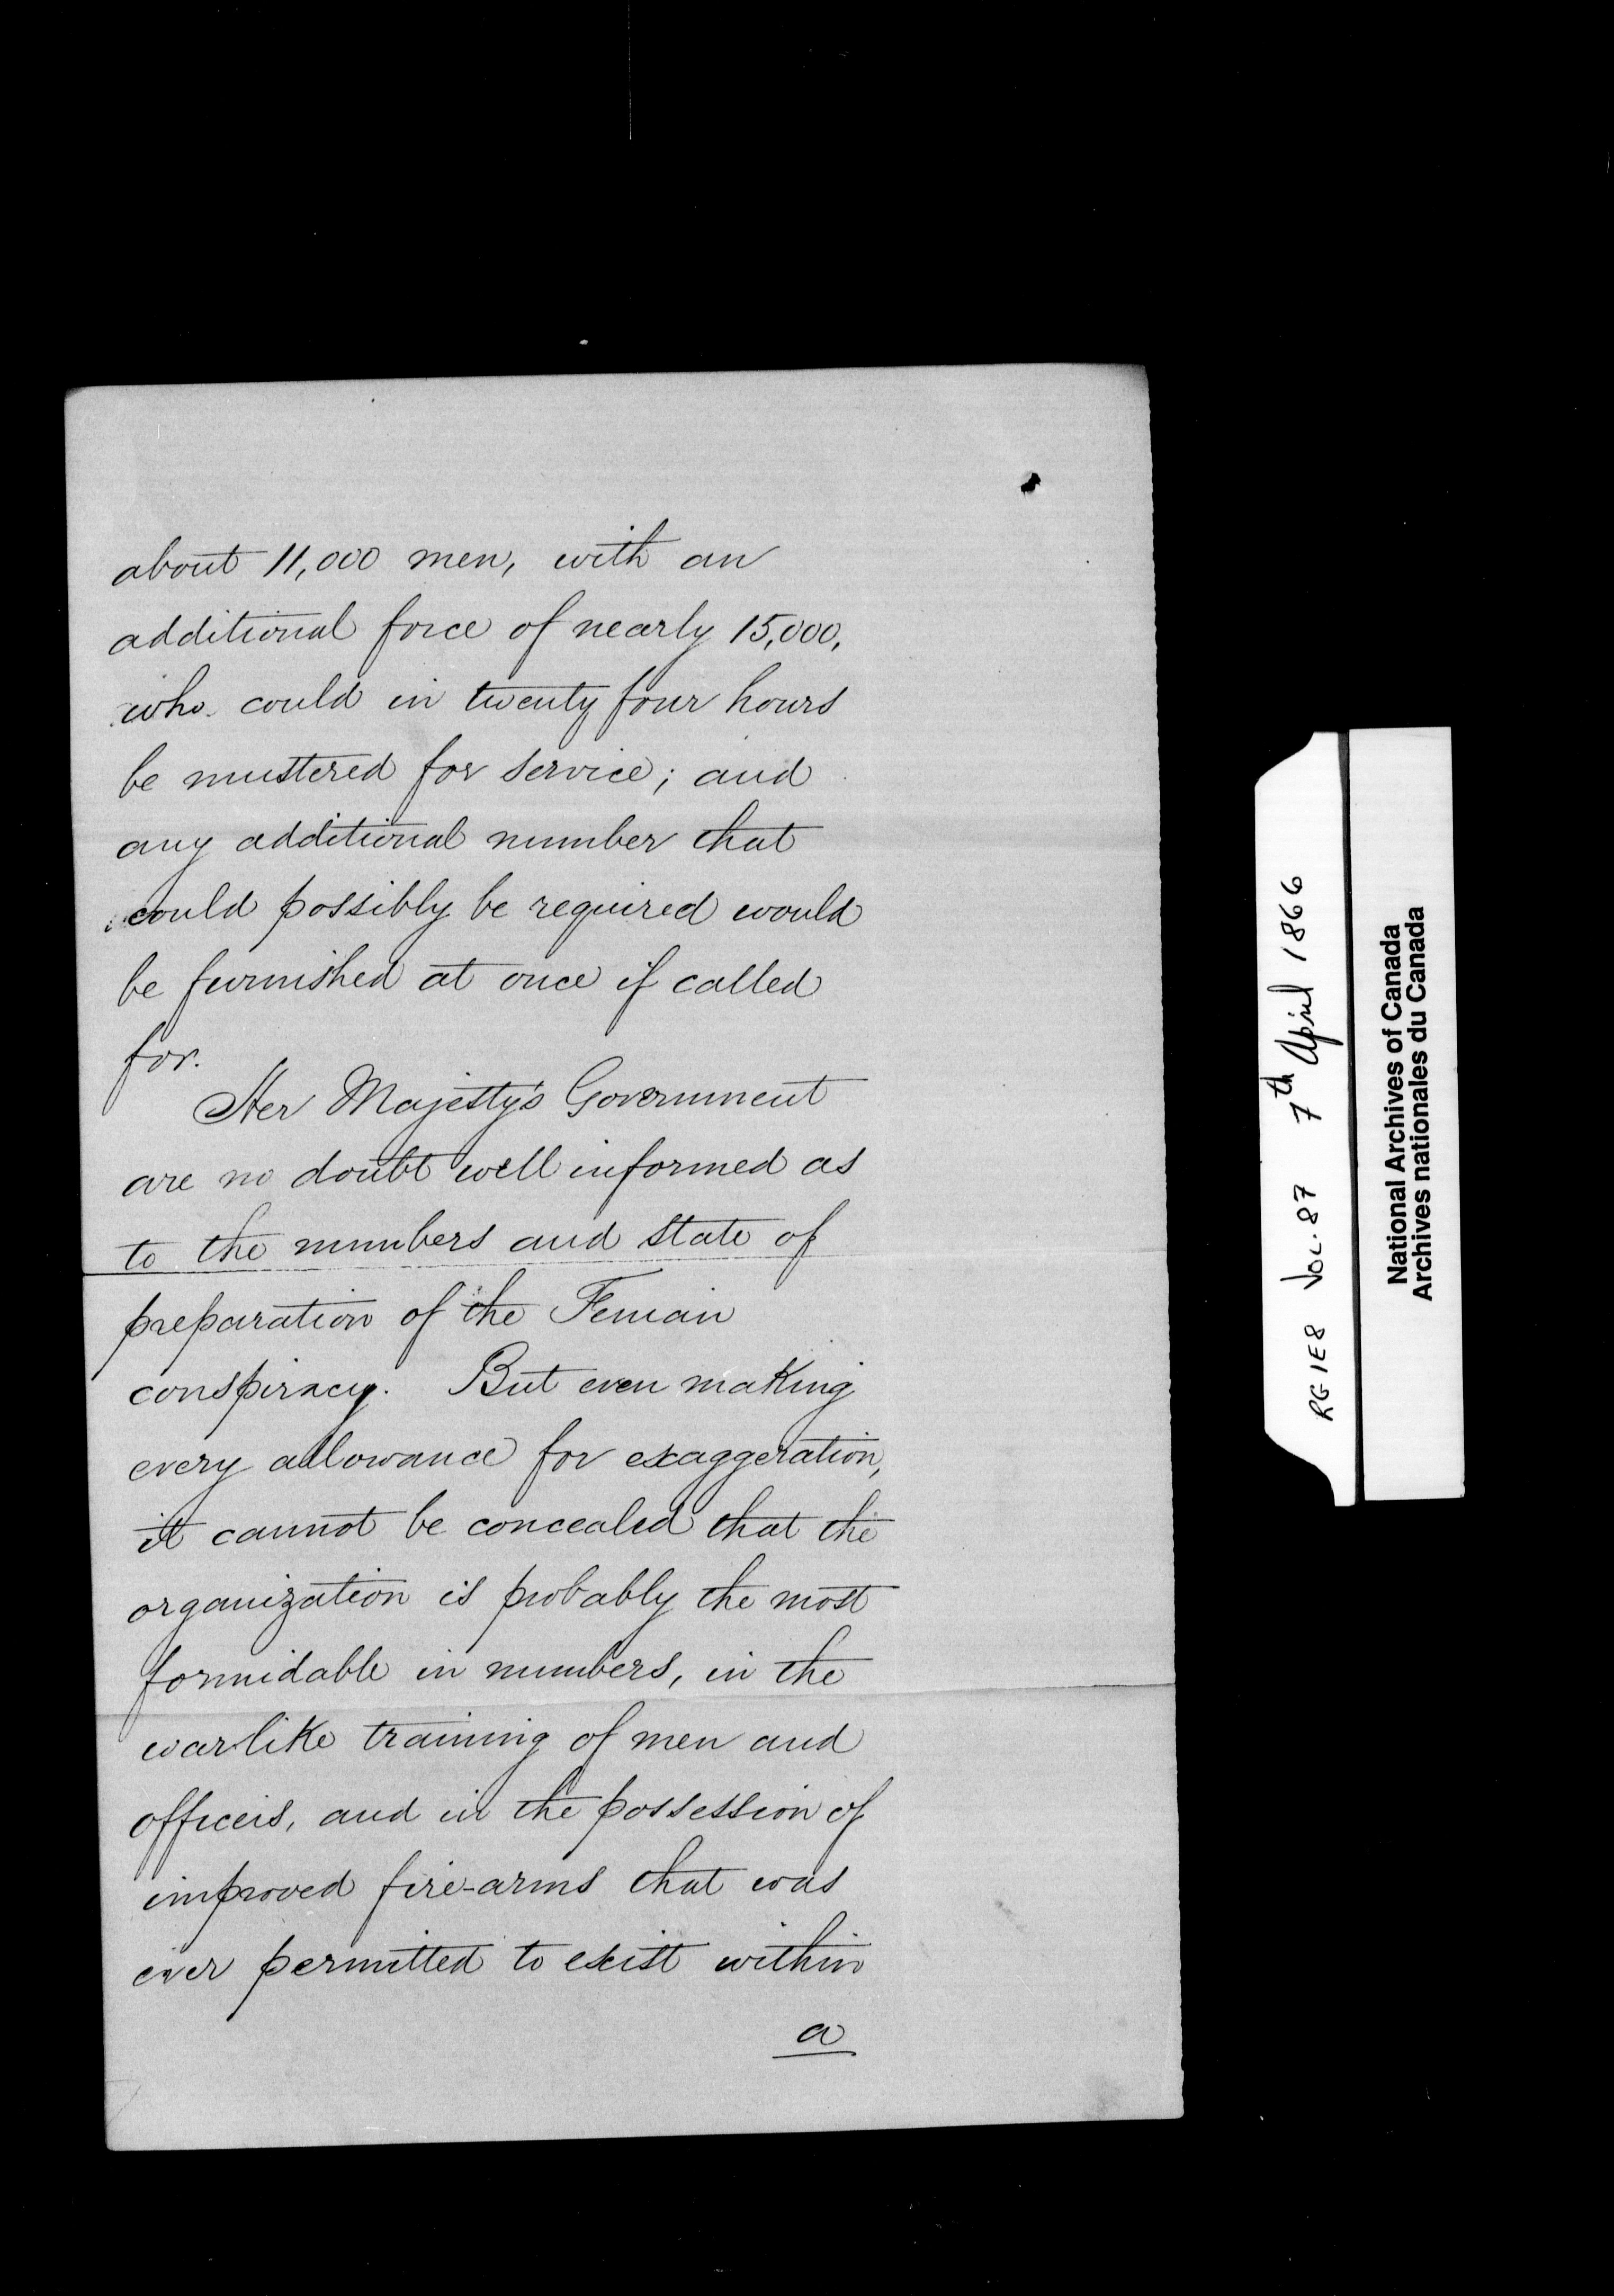 about 11,000 men, with an
additional force of nearly 15,000,
who could in twenty four hours
be mustered for service; and
any additional number that
could possibly be required would
be furnished at once if called
for.
Her Majesty's Government
are no doubt well informed as
to the numbers and state of
preparation of the Fenian
conspiracy. But even making
every allowance for exaggeration,
it cannot be concealed that the
organization is probably the most
formidable in numbers, in the
warlike training of men and
officers, and in the possession of
improved fire-arms that was
ever permitted to exist within
a
RG 1E8 VOL. 87 7th April 1866
National Archives of Canada
Archives nationales du Canada